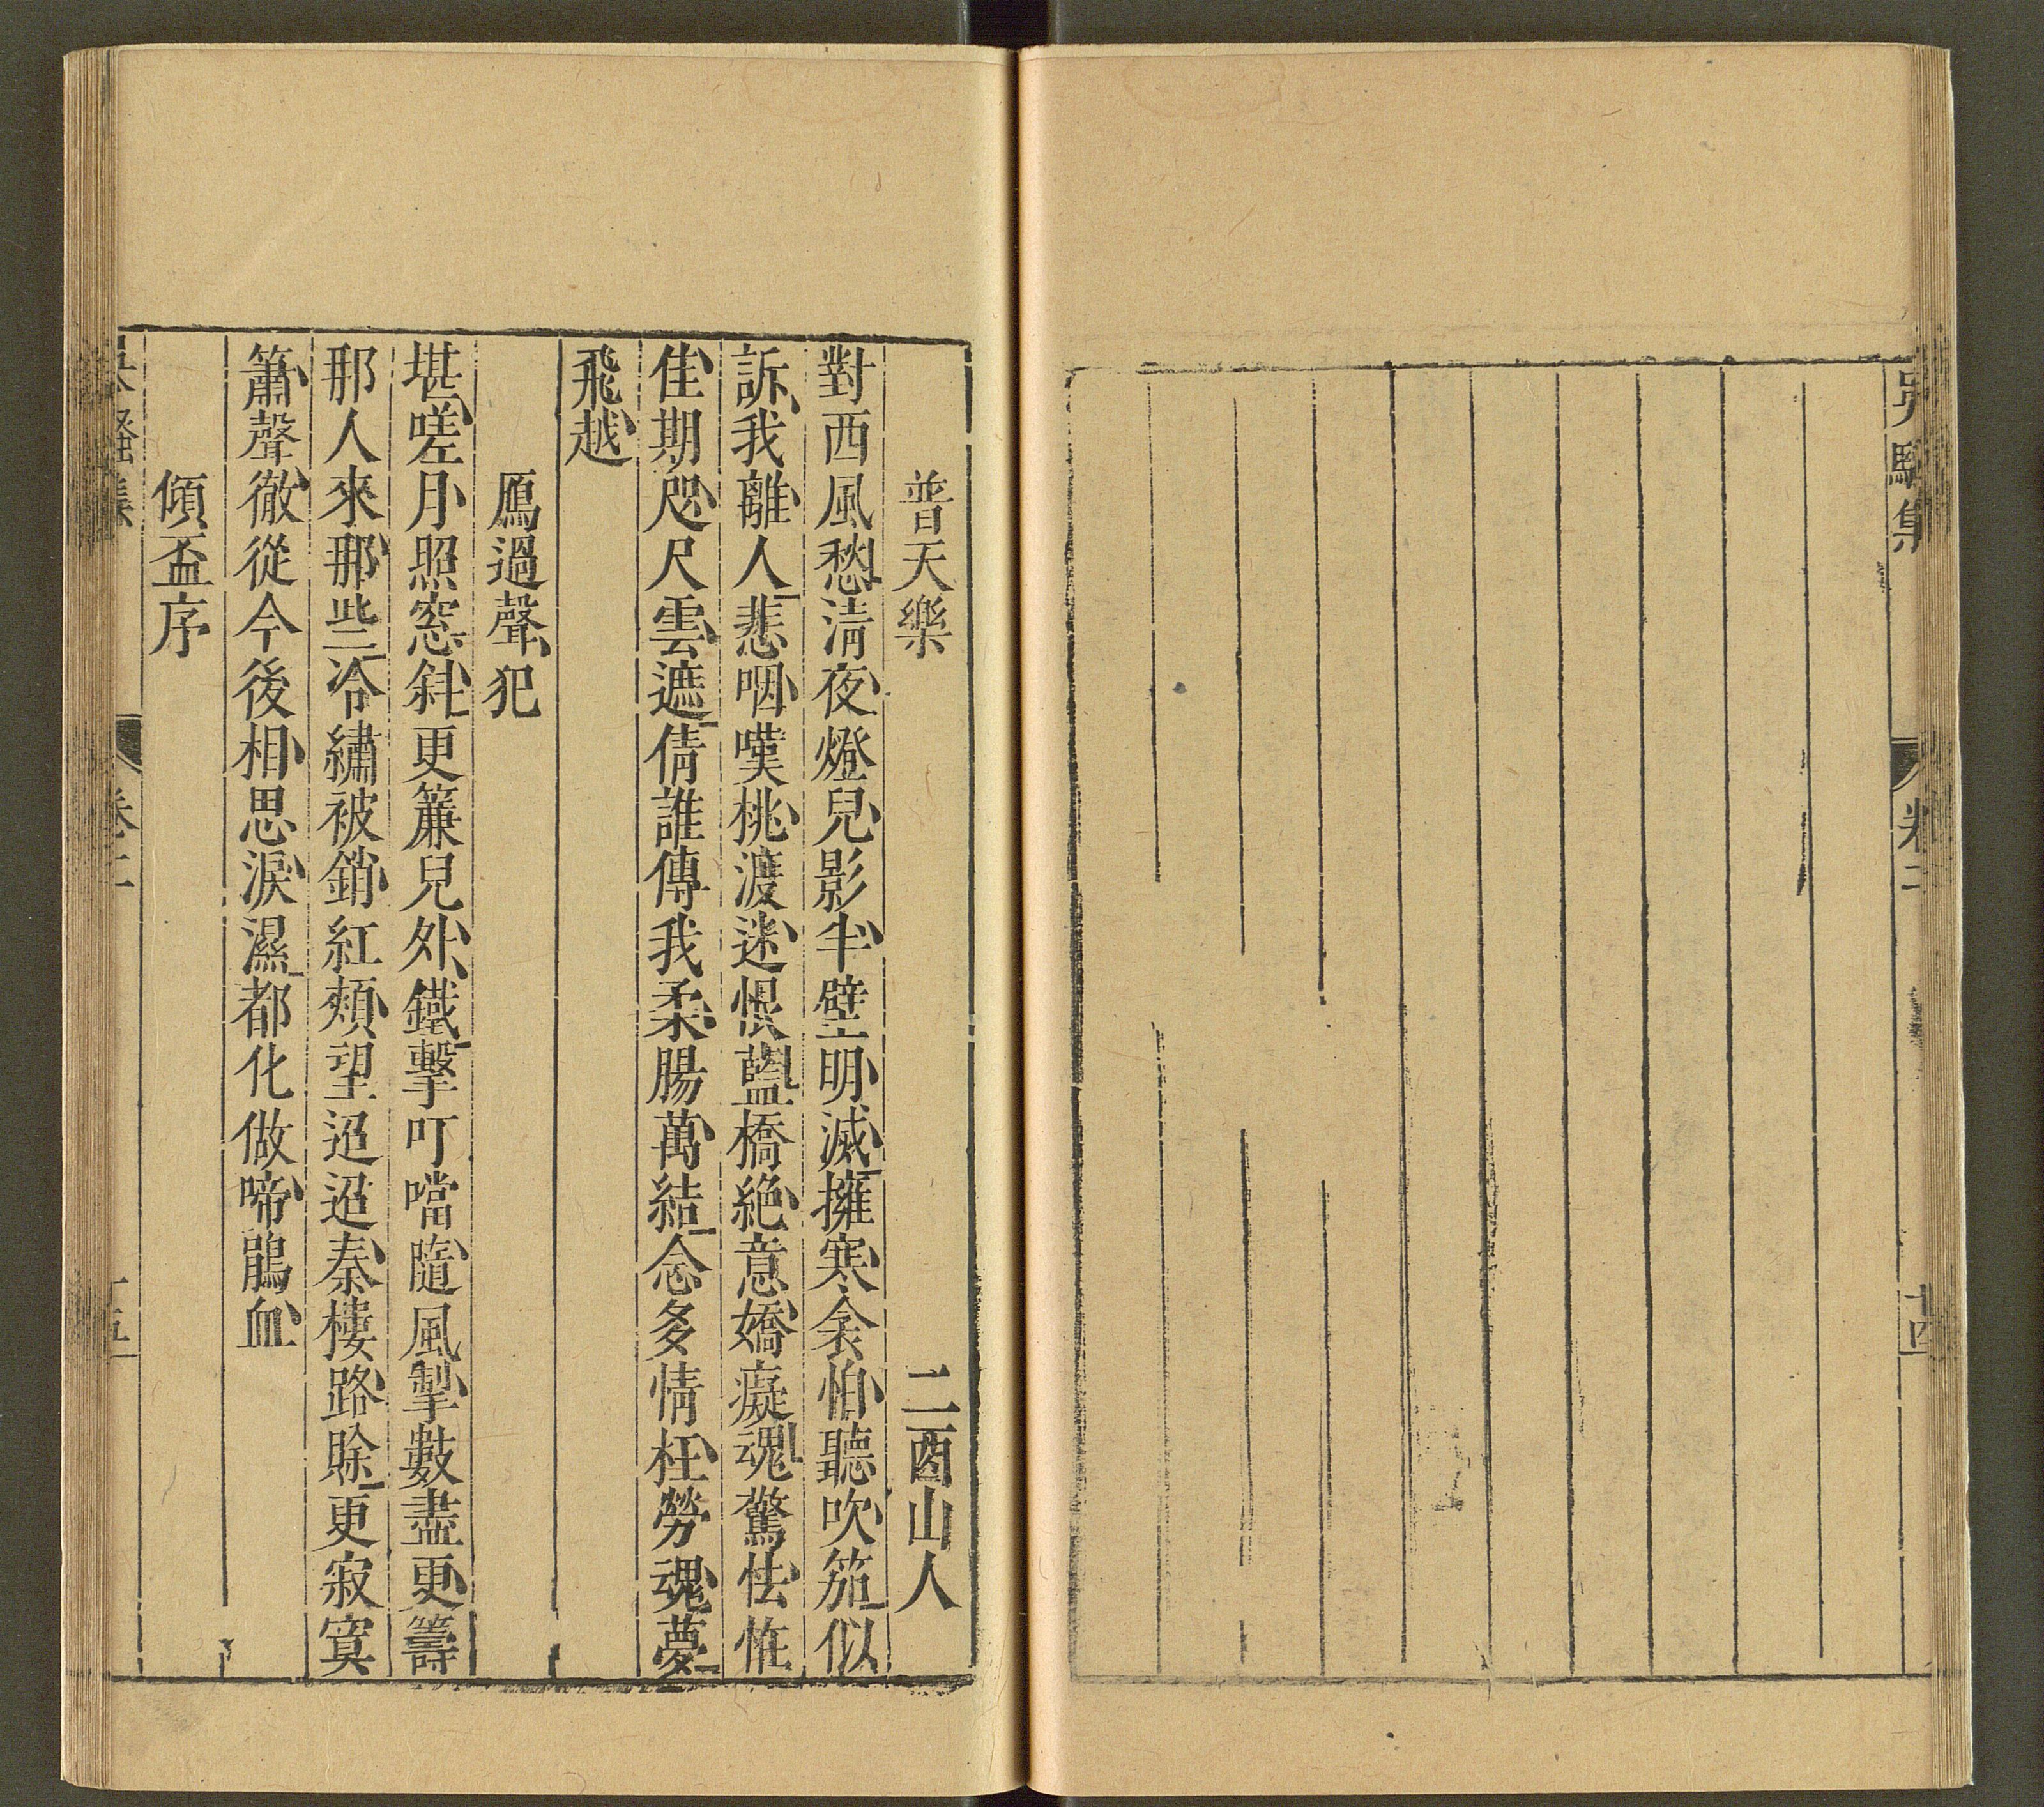 吳騷集
卷二
十四
普天樂
二酉山人
對西風愁清夜燈兒影半壁明滅擁寒衾怕聽吹笳似
訴我離人悲咽嘆桃渡迷恨藍橋絶意嬌癡魂驚怯恠
佳期咫尺雲遮倩誰傳我柔腸萬結念多情枉勞魂夢
飛越
鴈過聲犯
堪嗟月照窓斜更簾兒外鐵擊叮噹隨風掣數盡更籌
那人來那些冷繡被銷紅頰望迢迢秦樓路賒更寂寞
簫聲徹從今後相思淚濕都化做啼鵑血
傾盃序
吳騷集
卷二